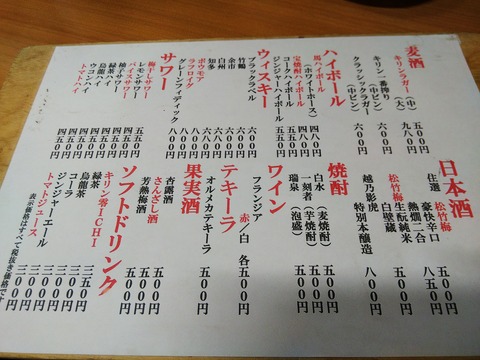 麦酒
キリンラガー(中) 五〇〇円
(大) 九八〇円
キリン一番搾り(中ビン)
クラッシックラガー(中ビン) 六〇〇円
ハイボール
馬ハイボール(ホワイトホース) 四八〇円
宝焼酎ハイボール 四八〇円
コークハイボール 五五〇円
ジンジャーハイボール 五五〇円
ウィスキー
ブラックラベル 六〇〇円
竹鶴
余市 六八〇円
白州
知多
ボウモア
ラフロイグ 八〇〇円
グレーンフィディック 八〇〇円
サワー
梅干しサワー 五五〇円
レモンサワー 四五〇円
バイスサワー 四五〇円
柚子サワー 四五〇円
緑茶ハイ 四五〇円
烏龍ハイ 四五〇円
ウコンハイ 四五〇円
トマトハイ 四五〇円
日本酒
松竹梅
豪快辛口
住選 五〇〇円
熱燗二合 八五〇円
松竹梅白壁蔵
生酛純米 五〇〇円
越乃影虎
特別本醸造 八〇〇円
焼酎
白水(麦焼酎) 五〇〇円
一刻者(芋焼酎) 五〇〇円
瑞泉(泡盛) 五〇〇円
ワイン
フランジア 赤/白 各五〇〇円
テキーラ
オルメカテキーラ 五〇〇円
果実酒
杏露酒 五〇〇円
さんざし酒 五〇〇円
芳熟梅酒 五五〇円
ソフトドリンク
キリン零ICHI 三五〇円
緑茶 三〇〇円
烏龍茶 三〇〇円
コーラ 三〇〇円
ジンジャーエール 三〇〇円
トマトジュース 三〇〇円
表示価格はすべて税抜き価格です